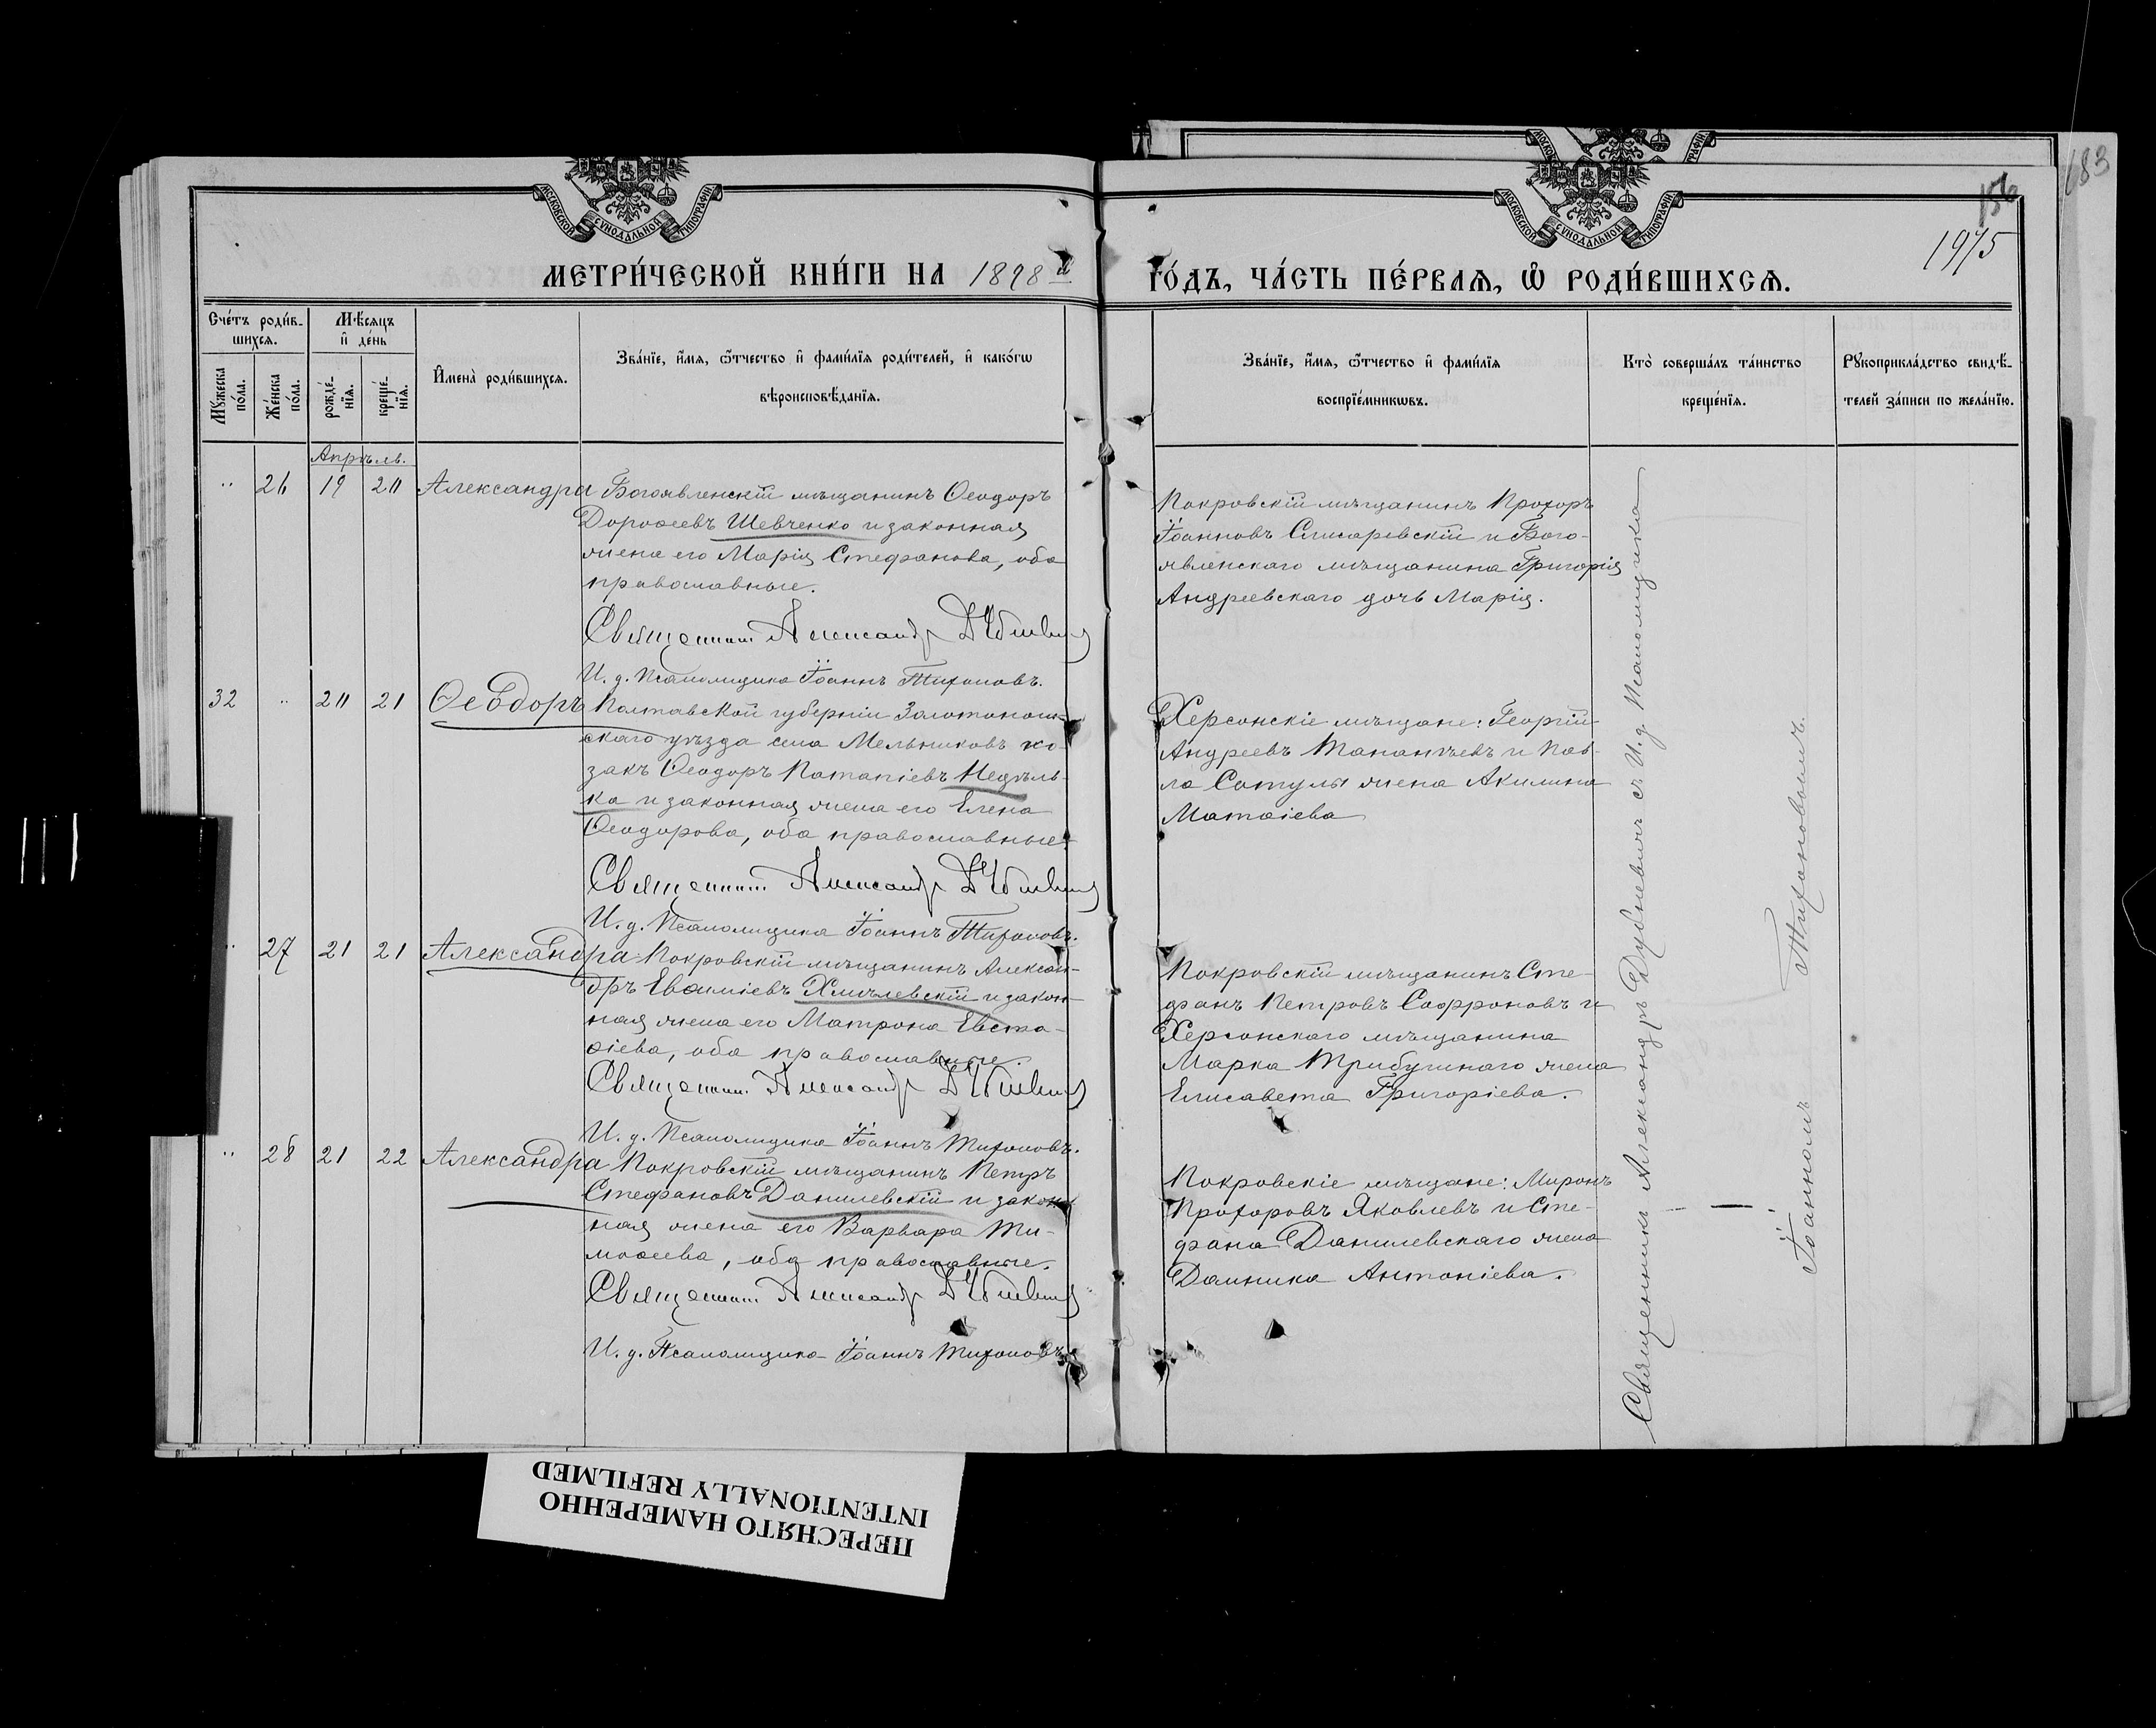 183
156
1975
МОСКОВСКОЙ СѴНОДАЛЬНОЙ ТИПОГРАФІИ
МОСКОВСКОЙ СѴНОДАЛЬНОЙ ТИПОГРАФІИ
МЕТРИ́ЧЕСКОЙ КНИ́ГИ НА 1898й
ГО́ДЪ, ЧА́СТЬ ПЕ́РВАѦ, Ѡ РОДИ́ВШИХСѦ.
Сче́тъ роди́в-
шихсѧ.
Мѣ́сѧцъ
и҆ де́нь
Мꙋ́жеска по́ла.
Же́нска по́ла.
рожде́-нїѧ.
креще́-нїѧ.
И҆мена̀ роди́вшихсѧ.
Зва́нїе, и҆́мѧ, ѻ҆́тчество и҆ фами́лїѧ роди́телей, и҆ како́гѡ
вѣроисповѣ́данїѧ.
Зва́нїе, и҆́мѧ, ѻ҆́тчество и҆ фами́лїѧ
воспрїе́мникѡвъ.
Кто̀ соверша́лъ та́инство
креще́нїѧ.
Рꙋкоприкла́дство свидѣ́-
телей за́писи по жела́нїю.
Апрѣль.
" 26 19 20 Александра
Богоявленскій мѣщанинъ Ѳеодоръ
Дороѳеевъ Шевченко и законная
жена его Марія Стефанова, оба
православные.
Священникъ Александръ
И. д. Псаломщика Іоаннъ Тихоновъ.
Покровскій мѣщанинъ Прохоръ
Іоанновъ Слисаревскій и Бого-
явленскаго мѣщанина Григорія
Андреевскаго дочь Марія.
32 " 20 21 Ѳеодоръ
Полтавской губерніи Золотонош-
скаго уѣзда села Мельниковъ ко-
закъ Ѳеодоръ Потапіевъ Недѣль-
ка и законная жена его Елена
Ѳеодорова, оба православные.
Священникъ Александръ
И. д. Псаломщика Іоаннъ Тихоновъ.
Херсонскіе мѣщане: Георгій
Андреевъ Танантьевъ и Пав-
ла Сотулы жена Акилина
Матѳіева
" 27 21 21 Александра
Покровскій мѣщанинъ Алексан-
дръ Евѳиміевъ Хмѣлевскій и закон-
ная жена его Матрона Евста-
ѳіева, оба православные.
Священникъ Александръ
И. д. Псаломщика Іоаннъ Тихоновъ.
Покровскій мѣщанинъ Сте-
фанъ Петровъ Софроновъ и
Херсонскаго мѣщанина
Марка Трибушнаго жена
Елисавета Григоріева.
" 28 21 22 Александра
Покровскій мѣщанинъ Петръ
Стефановъ Данилевскій и закон-
ная жена его Варвара Ти-
моѳеева, оба православные.
Священникъ Александръ
И. д. Псаломщика Іоаннъ Тихоновъ
Покровскіе мѣщане: Миронъ
Прохоровъ Яковлевъ и Сте-
фана Данилевскаго жена
Домника Антоніева.
Священникъ Александръ Дубневичъ съ И. д. Псаломщика
Іоанномъ Тихоновымъ.
ПЕРЕСНЯТО НАМЕРЕННО
INTENTIONALLY REFILMED